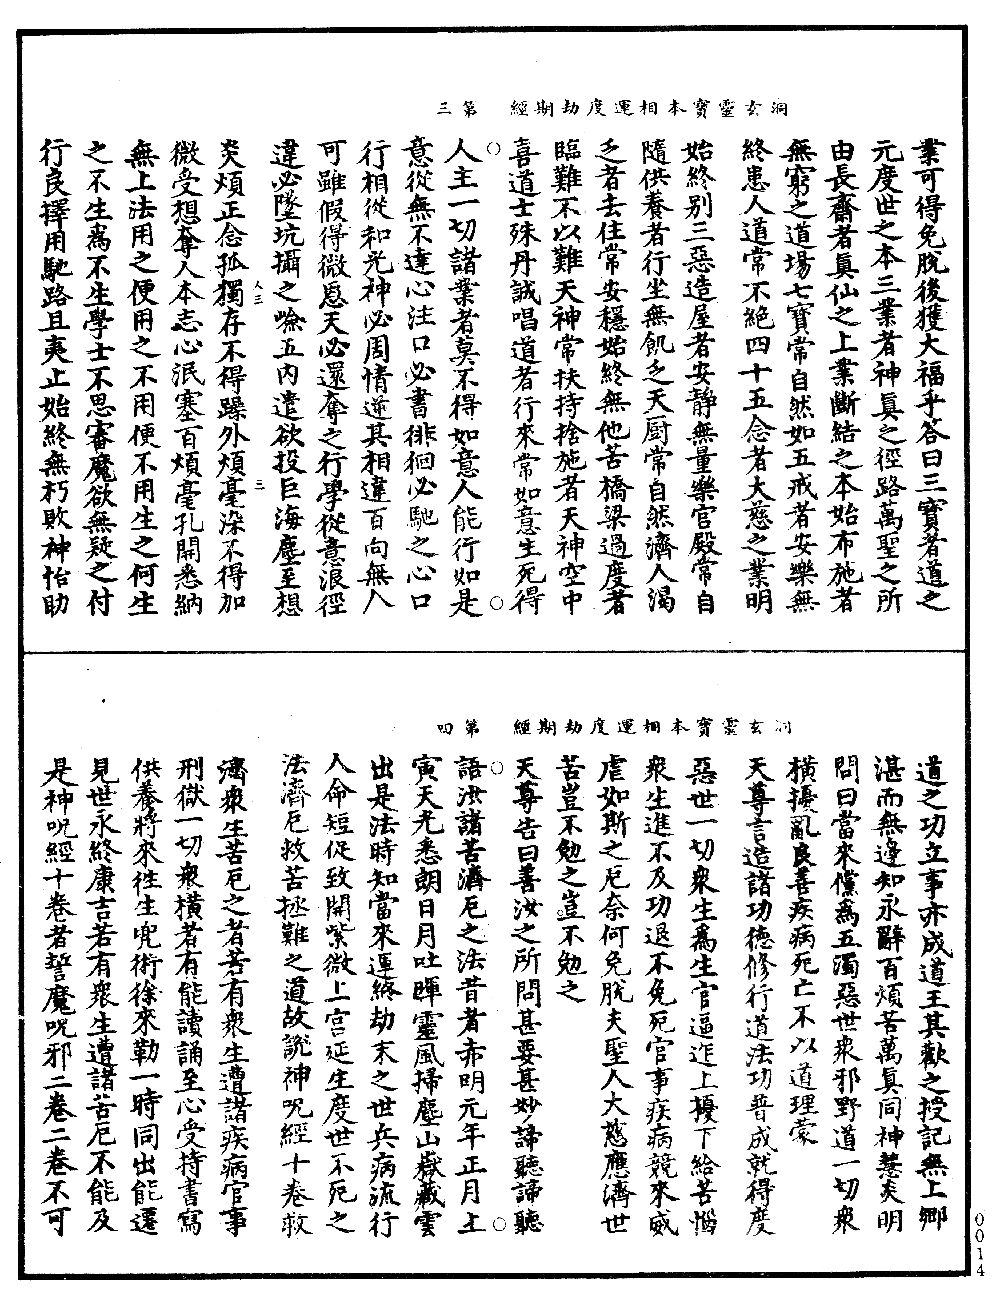 洞玄靈寶本相運度劫期經　第三
業可得免脫後獲大福乎答曰三寶者道之
元度世之本三業者神眞之徑路萬聖之所
由長齋者眞仙之上業斷結之本始布施者
無窮之道場七寶常自然如五戒者安樂無
終患人道常不絕四十五念者大慈之業明
始終別三惡造屋者安靜無量樂宮殿常自
隨供養者行坐無飢乏天厨常自然濟人渴
乏者去住常安穩始終無他苦橋梁過度者
臨難不以難天神常扶持捨施者天神空中
喜道士殊丹誠唱道者行來常如意生死得
人主一切諸業者莫不得如意人能行如是
意從無不達心注口必書徘徊必馳之心口
行相從和光神必周情逆其相違百向無入
可雖假得微恩天必還奪之行學從意浪徑
違必墜坑攝之喩五内遣欲投巨海塵至想
人三　三
炎煩正念孤獨存不得躁外煩毫染不得加
微受想奪人本志心泯塞百煩毫孔開悉納
無上法用之便用之不用便不用生之何生
之不生爲不生學士不思審魔欲無疑之付
行良擇用馳路且夷止始終無朽敗神怡助
洞玄靈寶本相運度劫期經　第四
道之功立事亦成道王其歡之授記無上鄉
湛而無邊知永辭百煩苦萬眞同神慧炎明
問曰當來儻爲五濁惡世衆邪野道一切衆
横擾亂良善疾病死亡不以道理蒙
天尊言造諸功德修行道法功普成就得度
惡世一切衆生爲生官逼迮上擾下給苦惱
衆生進不及功退不免死官事疾病競來威
虐如斯之厄奈何免脫夫聖人大慈應濟世
苦豈不勉之豈不勉之
天尊告曰善汝之所問甚要甚妙諦聽諦聽
語汝諸苦濟厄之法昔者赤明元年正月上
寅天光悉朗日月吐暉靈風掃塵山嶽藏雲
出是法時知當來運終劫末之世兵病流行
人命短促致開紫微上宫延生度世不死之
法濟厄救苦拯難之道故說神呪經十卷救
濟衆生苦厄之者若有衆生遭諸疾病官事
刑獄一切衆横者有能讀誦至心受持書寫
供養將來徃生兜術徐來勒一時同出能遷
見世永終康吉若有衆生遭諸苦厄不能及
是神呪經十卷者誓魔呪邪二卷二卷不可
0014